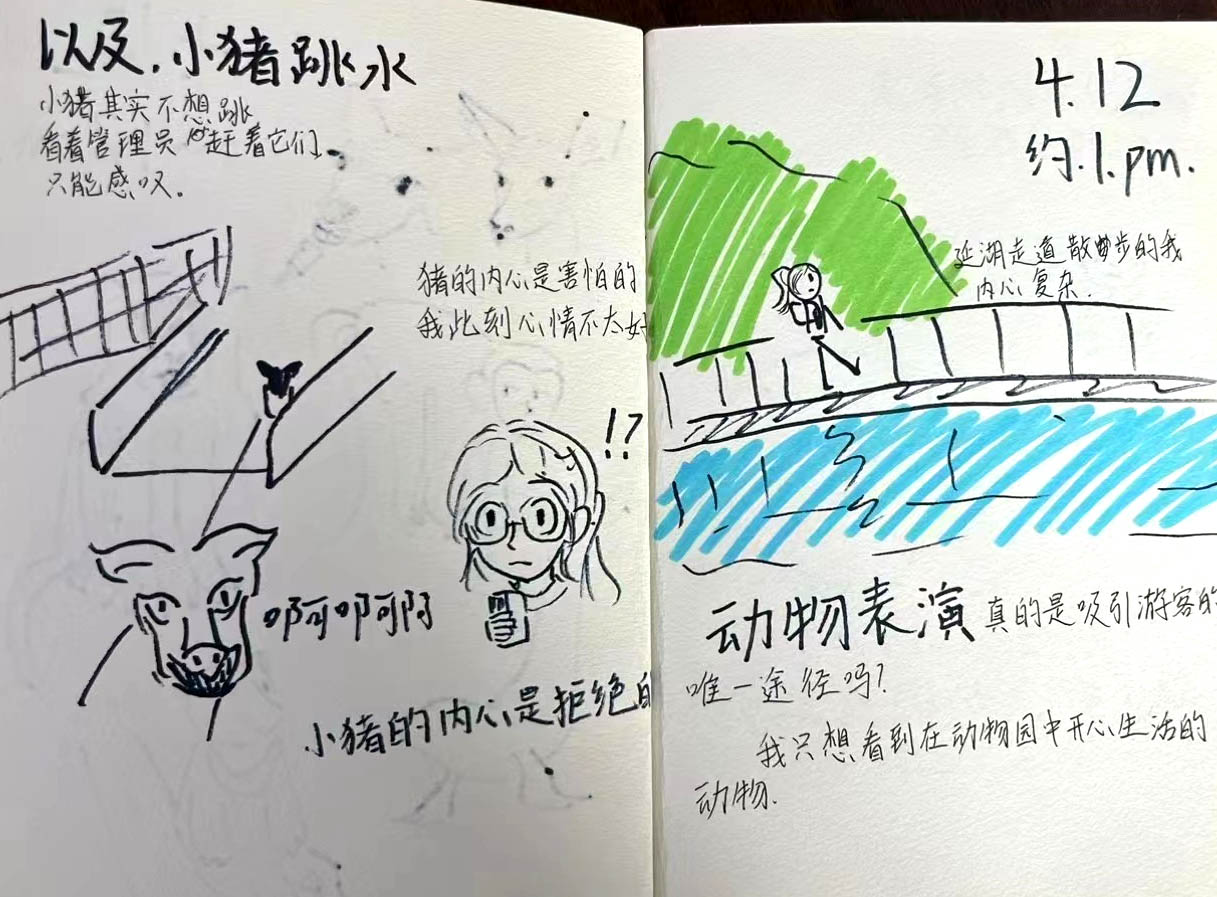 以及.小猪跳水
小猪其实不想跳
看着管理员赶着它们
只能感叹.
猪的内心是害怕的
我此刻心情不太好
!?
啊啊啊
小猪的内心是拒绝的
4.12
约.1.pm.
延湖走道散步的我
内心复杂.
动物表演真的是吸引游客的
唯一途径吗?
我只想看到在动物园中开心生活的
动物.